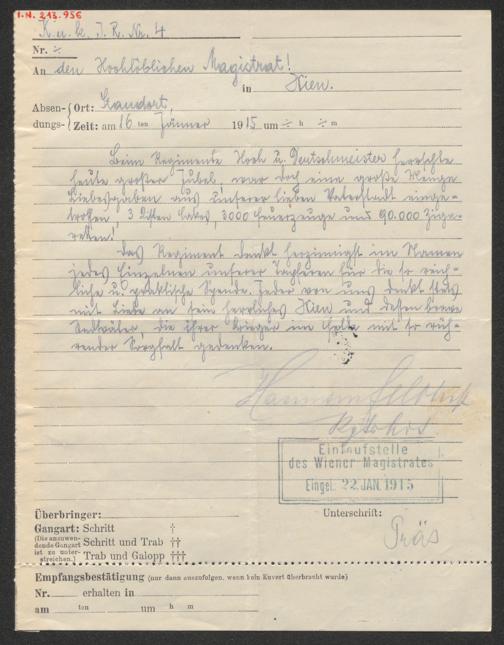 I.N. 213.956
K. u. k. I. R. Nr. 4
Nr. ÷
An den Hochlöblichen Magistrat!
in Wien.
Absen-dungs- { Ort: Standort,
Zeit: am 16 ten Jänner 1915 um ÷ h ÷ m
Beim Regimente Hoch u. Deutschmeister herrschte
heute großer Jubel, war doch eine große Menge
Liebesgaben aus unserer lieben Vaterstadt einge-
troffen, 3 Kisten 3000 Feuerzeuge und 90.000 Ziga-
retten!
Das Regiment dankt herzinnigst im Namen
jedes Einzelnen unserer Tapferen für die so reich-
liche u. praktische Spende. Jeder von uns denkt stets
mit Liebe an sein herrliches Wien und dessen brave
Stadtväter, die ihrer Krieger im Felde mit so rüh-
render Sorgfalt gedenken.
Einlaufstelle
des Wiener Magistrates
Eingel. 22. JAN. 1915
Überbringer:
Unterschrift:
Gangart: Schritt †
(Die anzuwen-
dende Gangart Schritt und Trab ††
ist zu unter-
streichen.) Trab und Galopp †††
Präs
Empfangsbestätigung (nur dann auszufolgen, wenn kein Kuvert überbracht wurde)
Nr. erhalten in
am ten um h m